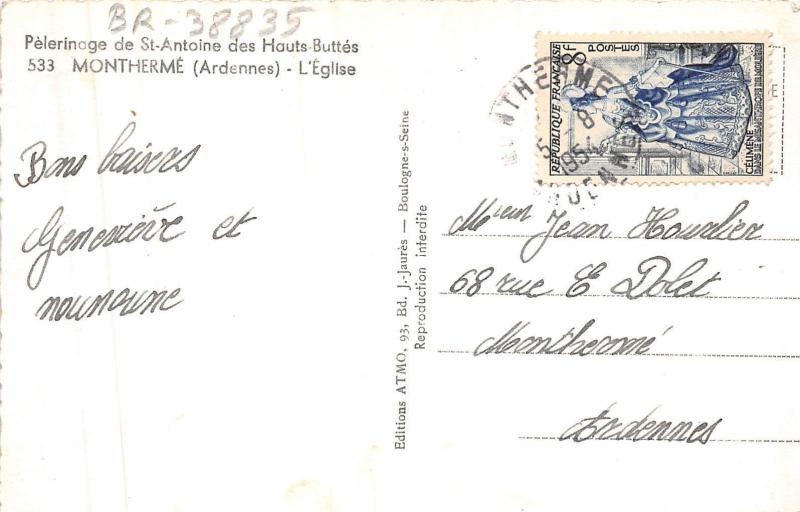 BR-38835
Pèlerinage de St-Antoine des Hauts-Buttés
533 MONTHERMÉ (Ardennes) - L'Église
Bons baisers
Geneviève et
nounoune
Editions ATMO, 93, Bd. J.-Jaurès — Boulogne-s-Seine
Reproduction interdite
8F
POSTES
RÉPUBLIQUE FRANÇAISE
CÉLIMÈNE
MONTHERMÉ
8
5
1954
ARDENNES
Mr Jean Hourlier
68 rue E Dolet
Monthermé
Ardennes